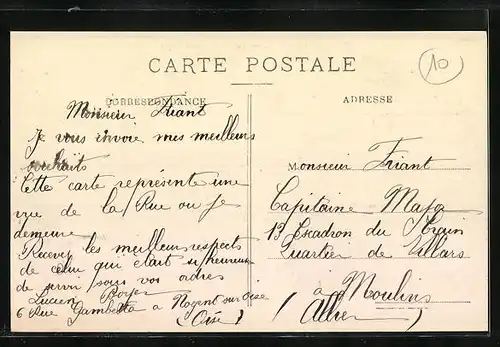 CARTE POSTALE
10
CORRESPONDANCE
Monsieur Friant
Je vous envoie mes meilleurs
souhaits
Cette carte représente une
vue de la Rue ou je
demeure
Recevez les meilleurs respects
de celui qui était si heureux
de servir sous vos ordres
Lucien Boyer
6 Rue Gambetta a Nogent sur Oise
(Oise)
ADRESSE
Monsieur Friant
Capitaine Major
13 Escadron du Train
Quartier de Villars
à Moulins
(Allier)